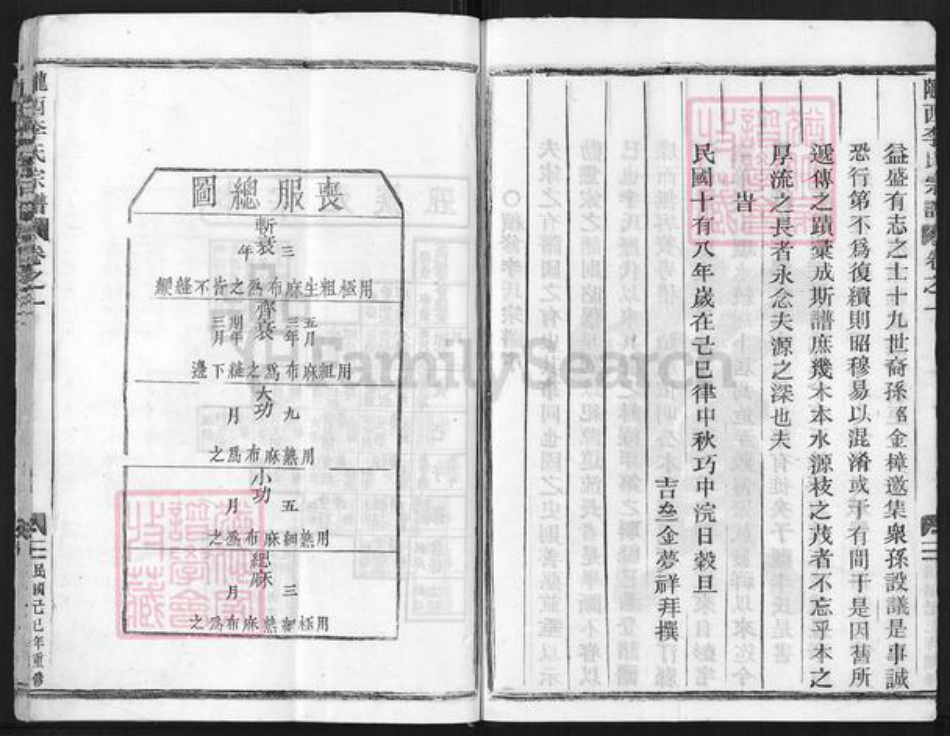 隴西李氏宗譜 卷之一
益盛有志之士十九世裔孫 金樟邀集衆孫設議是事誠
恐行第不爲復續則昭穆易以混淆或于有間于是因舊所
遞傳之蹟彙成斯譜庶幾木本水源枝之茂者不忘乎本之
厚流之長者永念夫源之深也夫
旹
民國十有八年歲在己巳律中秋巧中浣日穀旦
吉亝金夢祥拜撰
喪服總圖
斬衰
三年
用極粗生麻布爲之旹不縫緶
齊衰
五月
三年
期年
三月
用粗麻布爲之縫下邊
大功
九月
用熟麻布爲之
小功
五月
用熟細麻布爲之
緦麻
三月
用極細熟麻布爲之
隴西李氏宗譜 卷之一
民國己巳年重修
FamilySearch